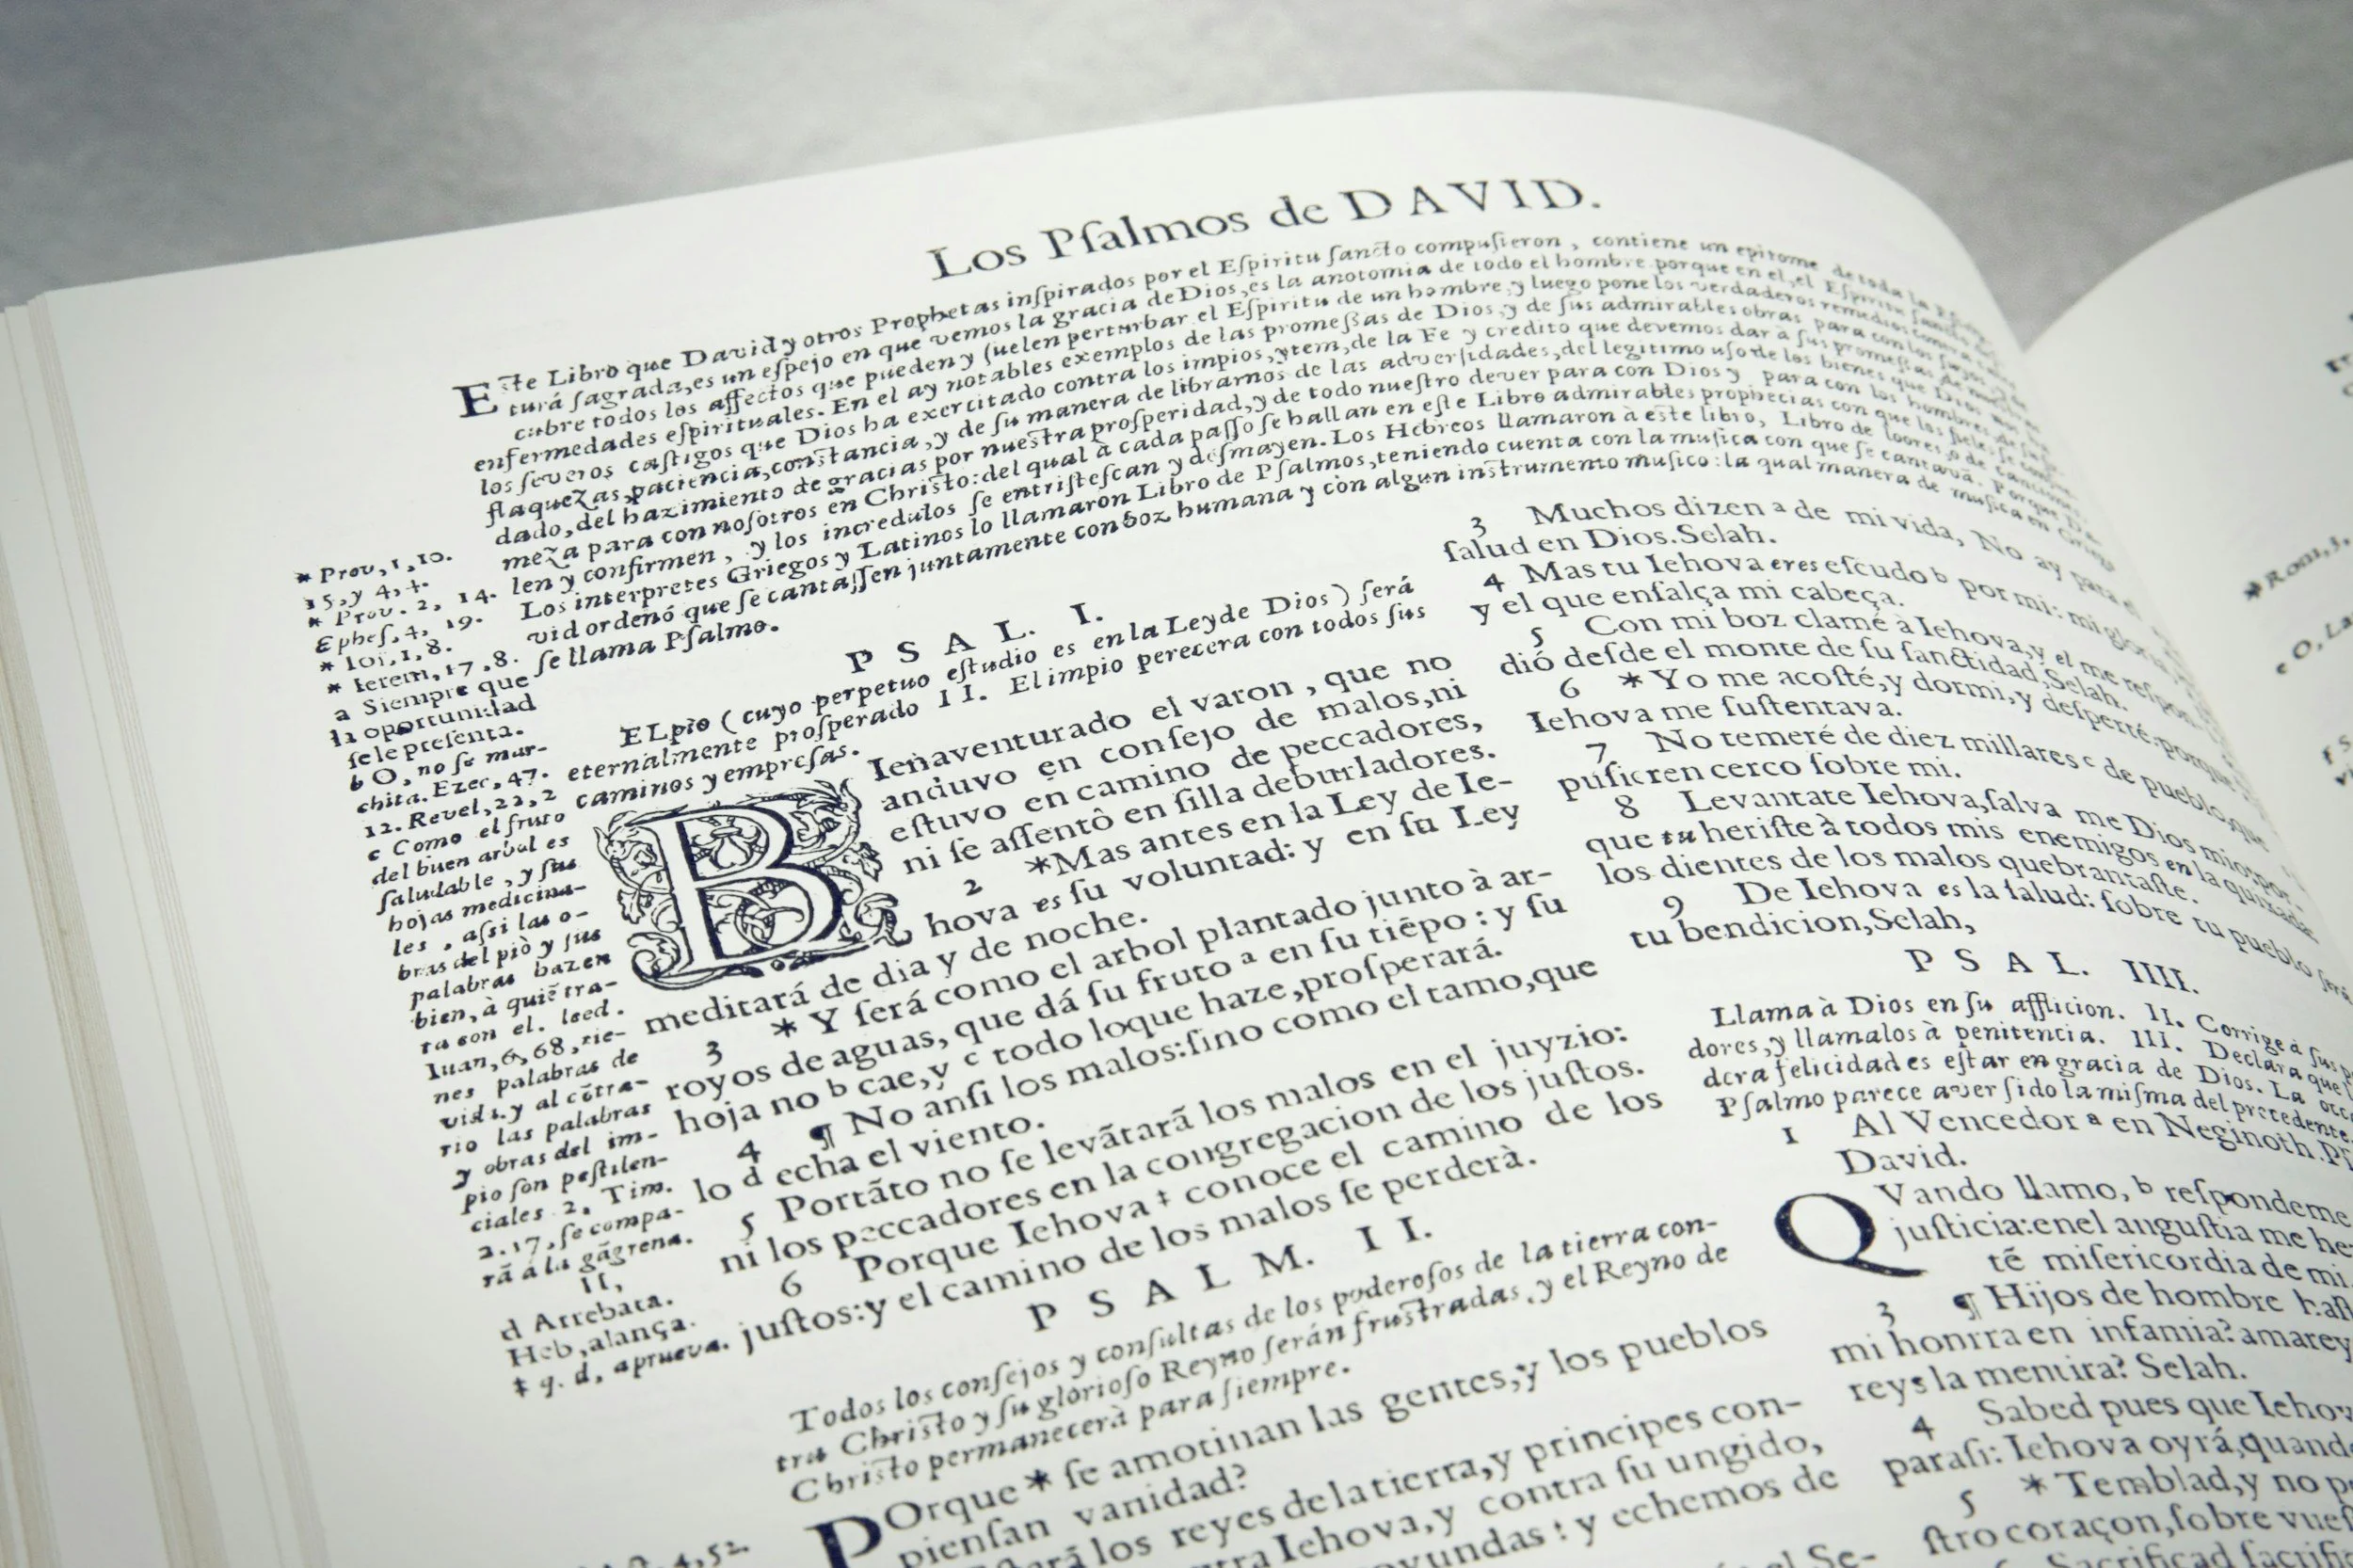 Los Pſalmos de DAVID.
ESte Libro que David y otros Prophetas inſpirados por el Eſpiritu ſancto compuſieron, contiene un epitome de toda la
turá ſagrada, es un eſpejo en que vemos la gracia de Dios, es la anotomia de todo el hombre porque en el, el Eſpiritu
cubre todos los affectos que pueden y ſuelen perturbar el Eſpiritu de un hombre, y luego pone los verdaderos remedios contra
enfermedades eſpirituales. En el ay notables exemplos de las promeſſas de Dios, y de ſus admirables obras para con los
los ſeveros caſtigos que Dios ha exercitado contra los impios, ytem, de la Fe y credito que devemos dar à ſus promeſſas
flaquezas, paciencia, conſtancia, y de ſu manera de librarnos de las adverſidades, del legitimo uſo de los bienes que Dios nos
dado, del hazimiento de gracias por nueſtra proſperidad, y de todo nueſtro dever para con Dios y para con los hombres
meza para con noſotros en Chriſto: del qual à cada paſſo ſe hallan en eſte Libro admirables prophecias con que los fieles ſe
len y confirmen, y los incredulos ſe entriſteſcan y deſmayen. Los Hebreos llamaron à eſte libro, Libro de loores, o de canciones
Los interpretes Griegos y Latinos lo llamaron Libro de Pſalmos, teniendo cuenta con la muſica con que ſe cantava. Porque Da-
vid ordenó que ſe cantaſſen juntamente con boz humana y con algun inſtrumento muſico: la qual manera de muſica en Griego
ſe llama Pſalmo.
* Prov, 1, 10.
15, y 4, 4.
* Prov. 2, 14.
Epheſ, 4, 19.
* Ioſ, 1, 8.
* Ierem, 17, 8.
a Siempre que
la oportunidad
ſe le preſenta.
b O, no ſe mar-
chita. Ezec, 47.
12. Revel, 22, 2
c Como el fruto
del buen arbol es
ſaludable, y ſus
hojas medicina-
les, aſsi las o-
bras del piò y ſus
palabras hazen
bien, à quiē tra-
ta con el. leed.
Iuan, 6, 68, tie-
nes palabras de
vida. y al cōtra-
rio las palabras
y obras del im-
pio ſon peſtilen-
ciales 2. Tim.
2. 17, ſe compa-
rā á la gāgrena.
II,
d Arrebata.
Heb, alança.
‡ q. d, aprueva.
P S A L. I.
EL pio (cuyo perpetuo eſtudio es en la Ley de Dios) ſerá
eternalmente proſperado II. El impio perecera con todos ſus
caminos y empreſas.
BIenaventurado el varon, que no
anduvo en conſejo de malos, ni
eſtuvo en camino de peccadores,
ni ſe aſſentò en ſilla de burladores.
2 *Mas antes en la Ley de Ie-
hova es ſu voluntad: y en ſu Ley
meditará de dia y de noche.
3 * Y ſerá como el arbol plantado junto à ar-
royos de aguas, que dá ſu fruto a en ſu tiēpo: y ſu
hoja no b cae, y c todo loque haze, proſperará.
4 ¶ No anſi los malos: ſino como el tamo, que
lo d echa el viento.
5 Portāto no ſe levātarā los malos en el juyzio:
ni los peccadores en la congregacion de los juſtos.
6 Porque Iehova ‡ conoce el camino de los
juſtos: y el camino de los malos ſe perderà.
P S A L M. II.
Todos los conſejos y conſultas de los poderoſos de la tierra con-
tra Chriſto y ſu glorioſo Reyno ſerán fruſtradas, y el Reyno de
Chriſto permanecerà para ſiempre.
POrque * ſe amotinan las gentes, y los pueblos
pienſan vanidad?
los reyes de la tierra, y principes con-
Iehova, y contra ſu ungido,
y echemos de
3 Muchos dizen a de mi vida, No ay para el
ſalud en Dios. Selah.
4 Mas tu Iehova eres eſcudo b por mi: mi gloria,
y el que enſalça mi cabeça.
5 Con mi boz clamé à Iehova, y el me reſpon-
dió deſde el monte de ſu ſanctidad, Selah.
6 * Yo me acoſté, y dormi, y deſperté: porque
Iehova me ſuſtentava.
7 No temeré de diez millares c de pueblo, que
puſieren cerco ſobre mi.
8 Levantate Iehova, ſalva me Dios mio: por-
que tu heriſte à todos mis enemigos en la quixada:
los dientes de los malos quebrantaſte.
9 De Iehova es la ſalud: ſobre tu pueblo ſerá
tu bendicion, Selah,
P S A L. IIII.
Llama à Dios en ſu afflicion. II. Corrige à ſus
dores, y llamalos à penitencia. III. Declara que
dera felicidad es eſtar en gracia de Dios. La
Pſalmo parece aver ſido la miſma del precedente.
1 Al Vencedor a en Neginoth.
David.
QVando llamo, b reſpondeme
juſticia: enel anguſtia me
tē miſericordia de mi
3 ¶ Hijos de hombre
mi honrra en infamia? amarey
reys la mentira? Selah.
4 Sabed pues que
para ſi: Iehova oyrá, quando
5 * Temblad, y no
ſtro coraçon, ſobre
* Rom, 3,